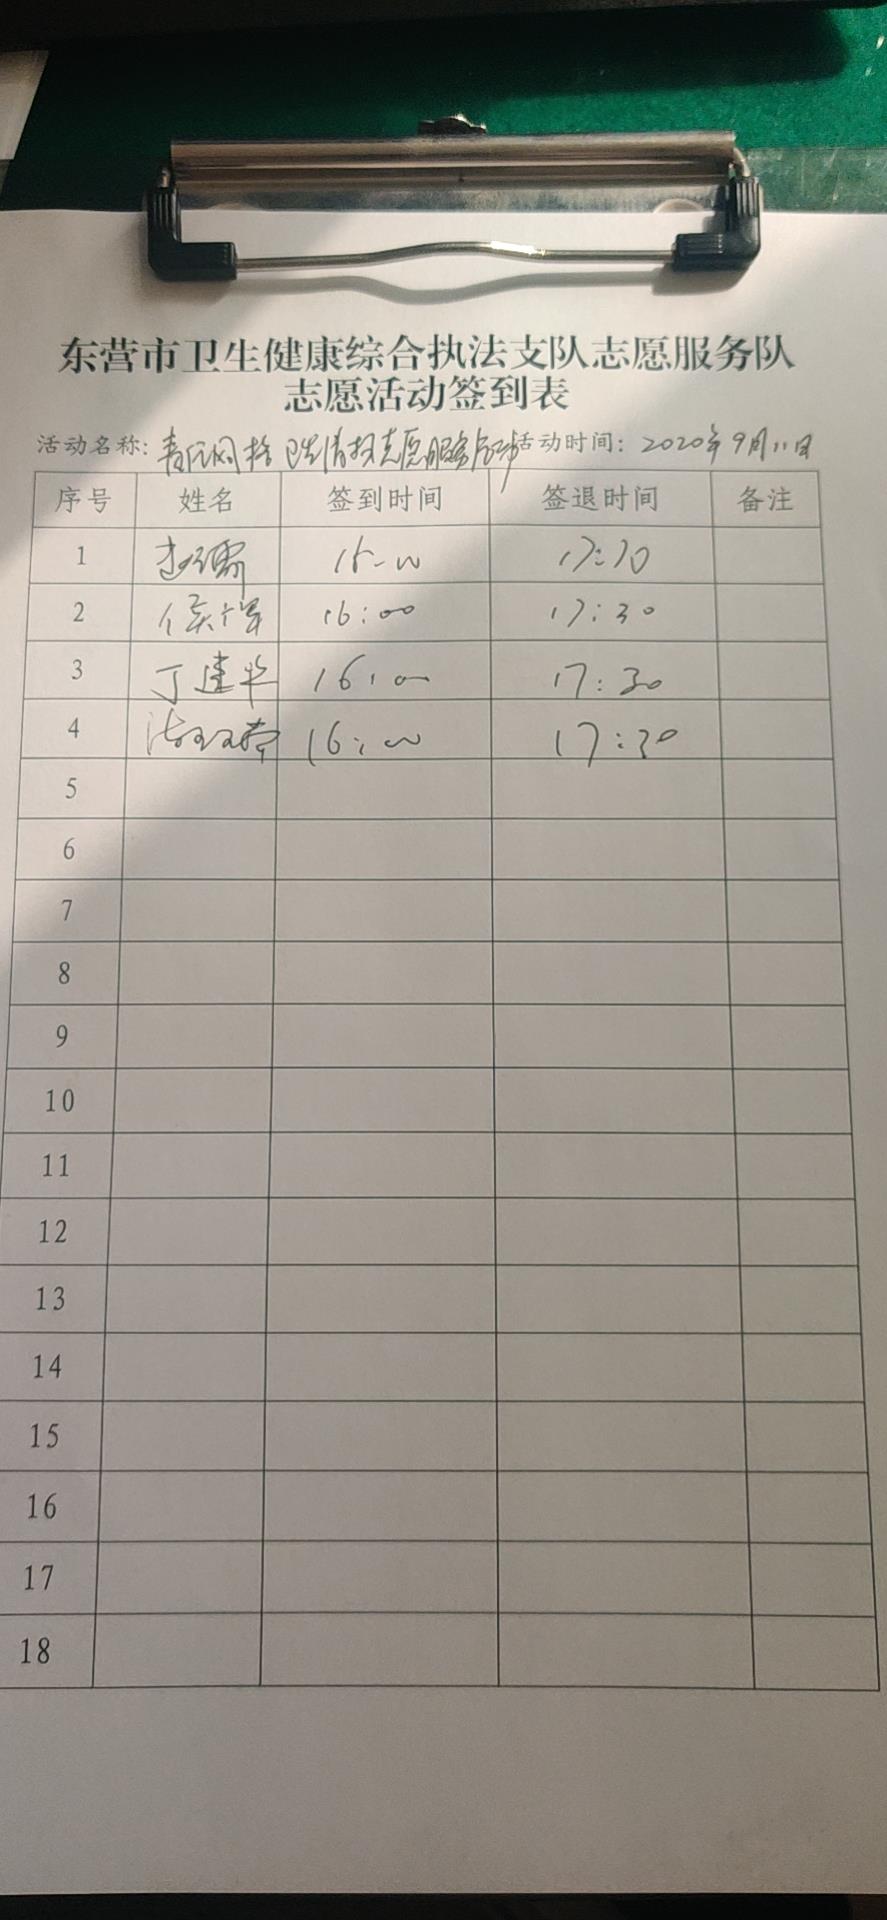 东营市卫生健康综合执法支队志愿服务队
志愿活动签到表
活动名称: 卫生清扫志愿服务活动 活动时间: 2020年9月11日
序号 姓名 签到时间 签退时间 备注
1 17:30
2 侯 16:00 17:30
3 丁建华 16:00 17:30
4 16:00 17:30
5
6
7
8
9
10
11
12
13
14
15
16
17
18